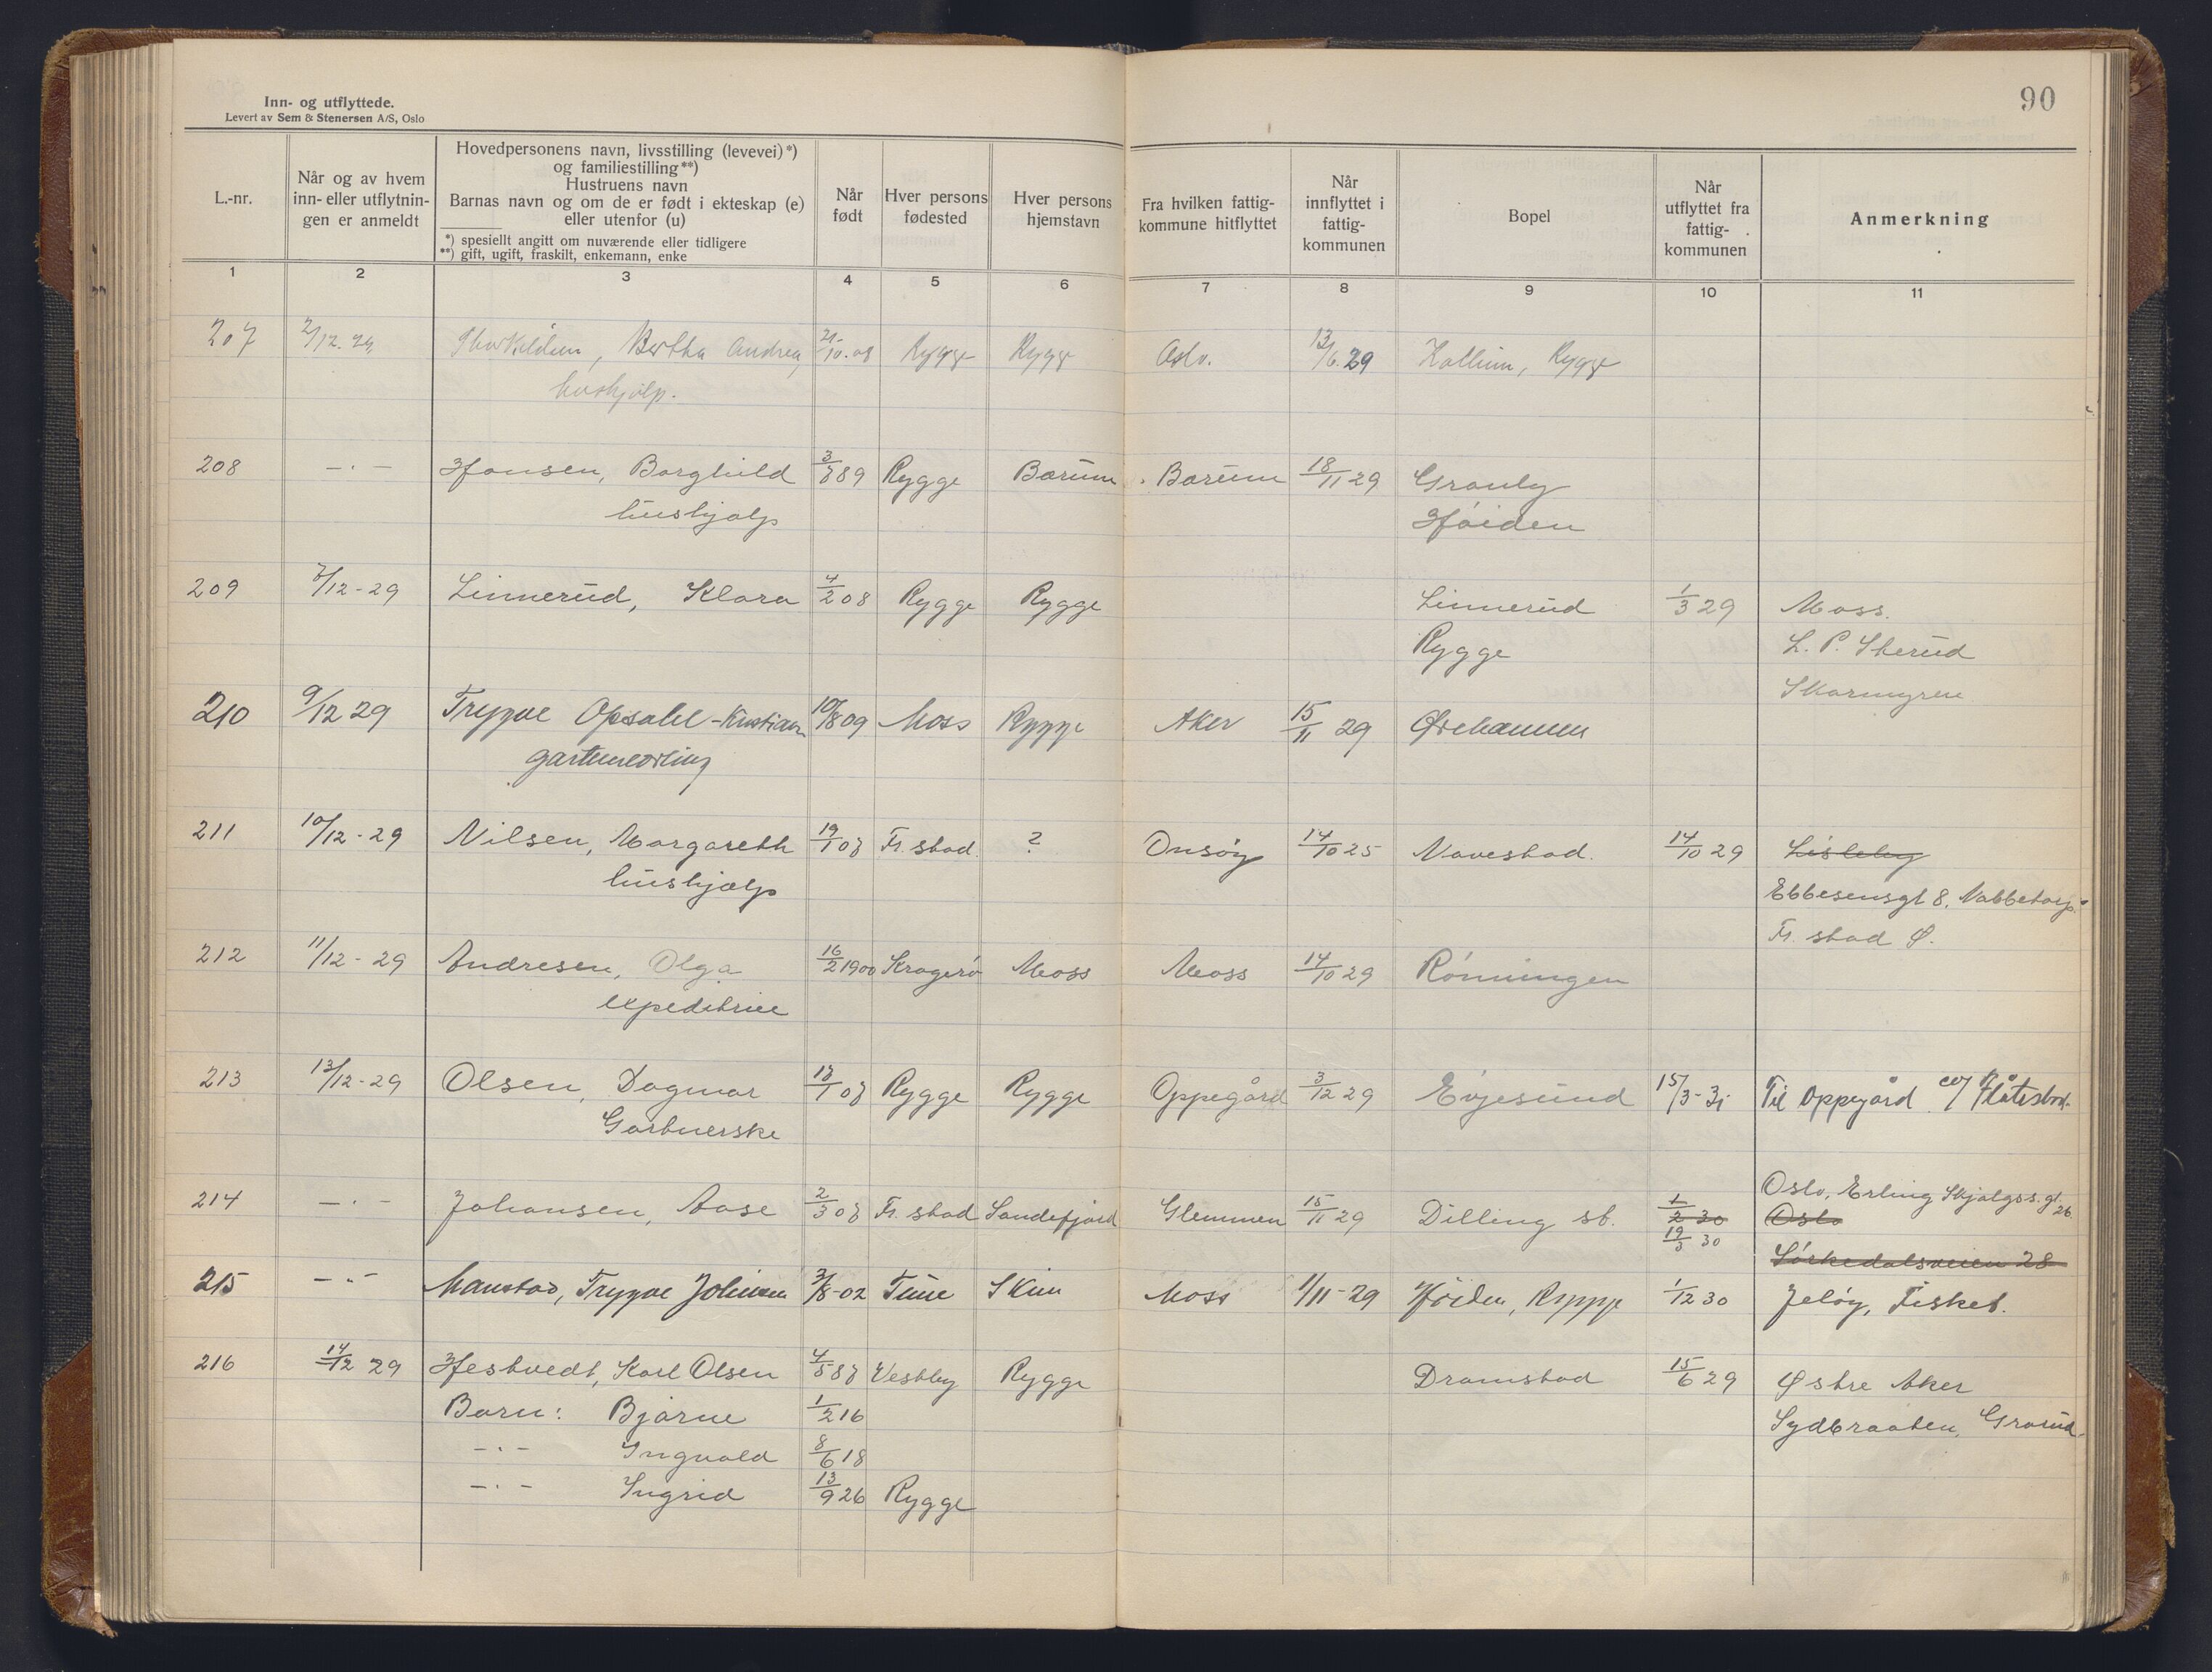 90
Inn- og utflyttede.
Levert av Sem & Stenersen A/S, Oslo
L.-nr.
Når og av hvem
inn- eller utflytnin-
gen er anmeldt
Hovedpersonens navn, livsstilling (levevei)*)
og familiestilling**)
Hustruens navn
Barnas navn og om de er født i ekteskap (e)
eller utenfor (u)
*) spesiellt angitt om nuværende eller tidligere
**) gift, ugift, fraskilt, enkemann, enke
Når
født
Hver persons
fødested
Hver persons
hjemstavn
Fra hvilken fattig-
kommune hitflyttet
Når
innflyttet i
fattig-
kommunen
Bopel
Når
utflyttet fra
fattig-
kommunen
Anmerkning
1 2 3 4 5 6 7 8 9 10 11
207 2/12. 29 Thorkildsen, Bertha Andrea, 21/10.08 Rygge Rygge Oslo. 13/6.29 Kallum, Rygge
hushjelp.
208 -"- Hansen, Borghild 3/8 89 Rygge Bærum Bærum 18/11 29 Granly
hushjælp Høiden
209 7/12-29 Linnerud, Klara 4/2 08 Rygge Rygge Linnerud 1/3 29 Moss.
Rygge L. P. Sherud
Skarmyren
210 9/12 29 Trygve Opsahl-Kristiansen 10/8 09 Moss Rygge Aker 15/11 29 Ørehammen
gartnerlærling
211 10/12-29 Nilsen, Margareth 19/1 08 Fr. stad. ? Onsøy 14/10 25 Navestad. 14/10 29 Lisleby
hushjælp Ebbesensgt 8, Nabbetorp.
Fr. stad Ø.
212 11/12-29 Andresen, Olga 16/2 1900 Kragerø Moss Moss 14/10 29 Rønningen
expeditrice
213 13/12-29 Olsen, Dagmar 18/1 08 Rygge Rygge Oppegård 3/12 29 Evjesund 15/3-31 Til Oppegård
Gartnerske
214 -"- Johansen, Aase 2/3 08 Fr. stad Sandefjord Glemmen 15/11 29 Dilling st. 1/2 30 Oslo, Erling Skjalgss. gt. 26
Oslo
19/3 30 Sørkedalsveien 28
215 -"- Manstad, Trygve Johansen 3/8-02 Tune Skien Moss 1/11-29 Høiden, Rygge 1/12 30 Jeløy, Fisket.
216 14/12 29 Hestvedt, Karl Olsen 4/5 88 Vestby Rygge Dramstad 15/6 29 Østre Aker
Barn: Bjarne 1/2 16 Sydbraaten, Grorud.
-"- Ingvald 8/6 18
-"- Ingrid 13/9 26 Rygge